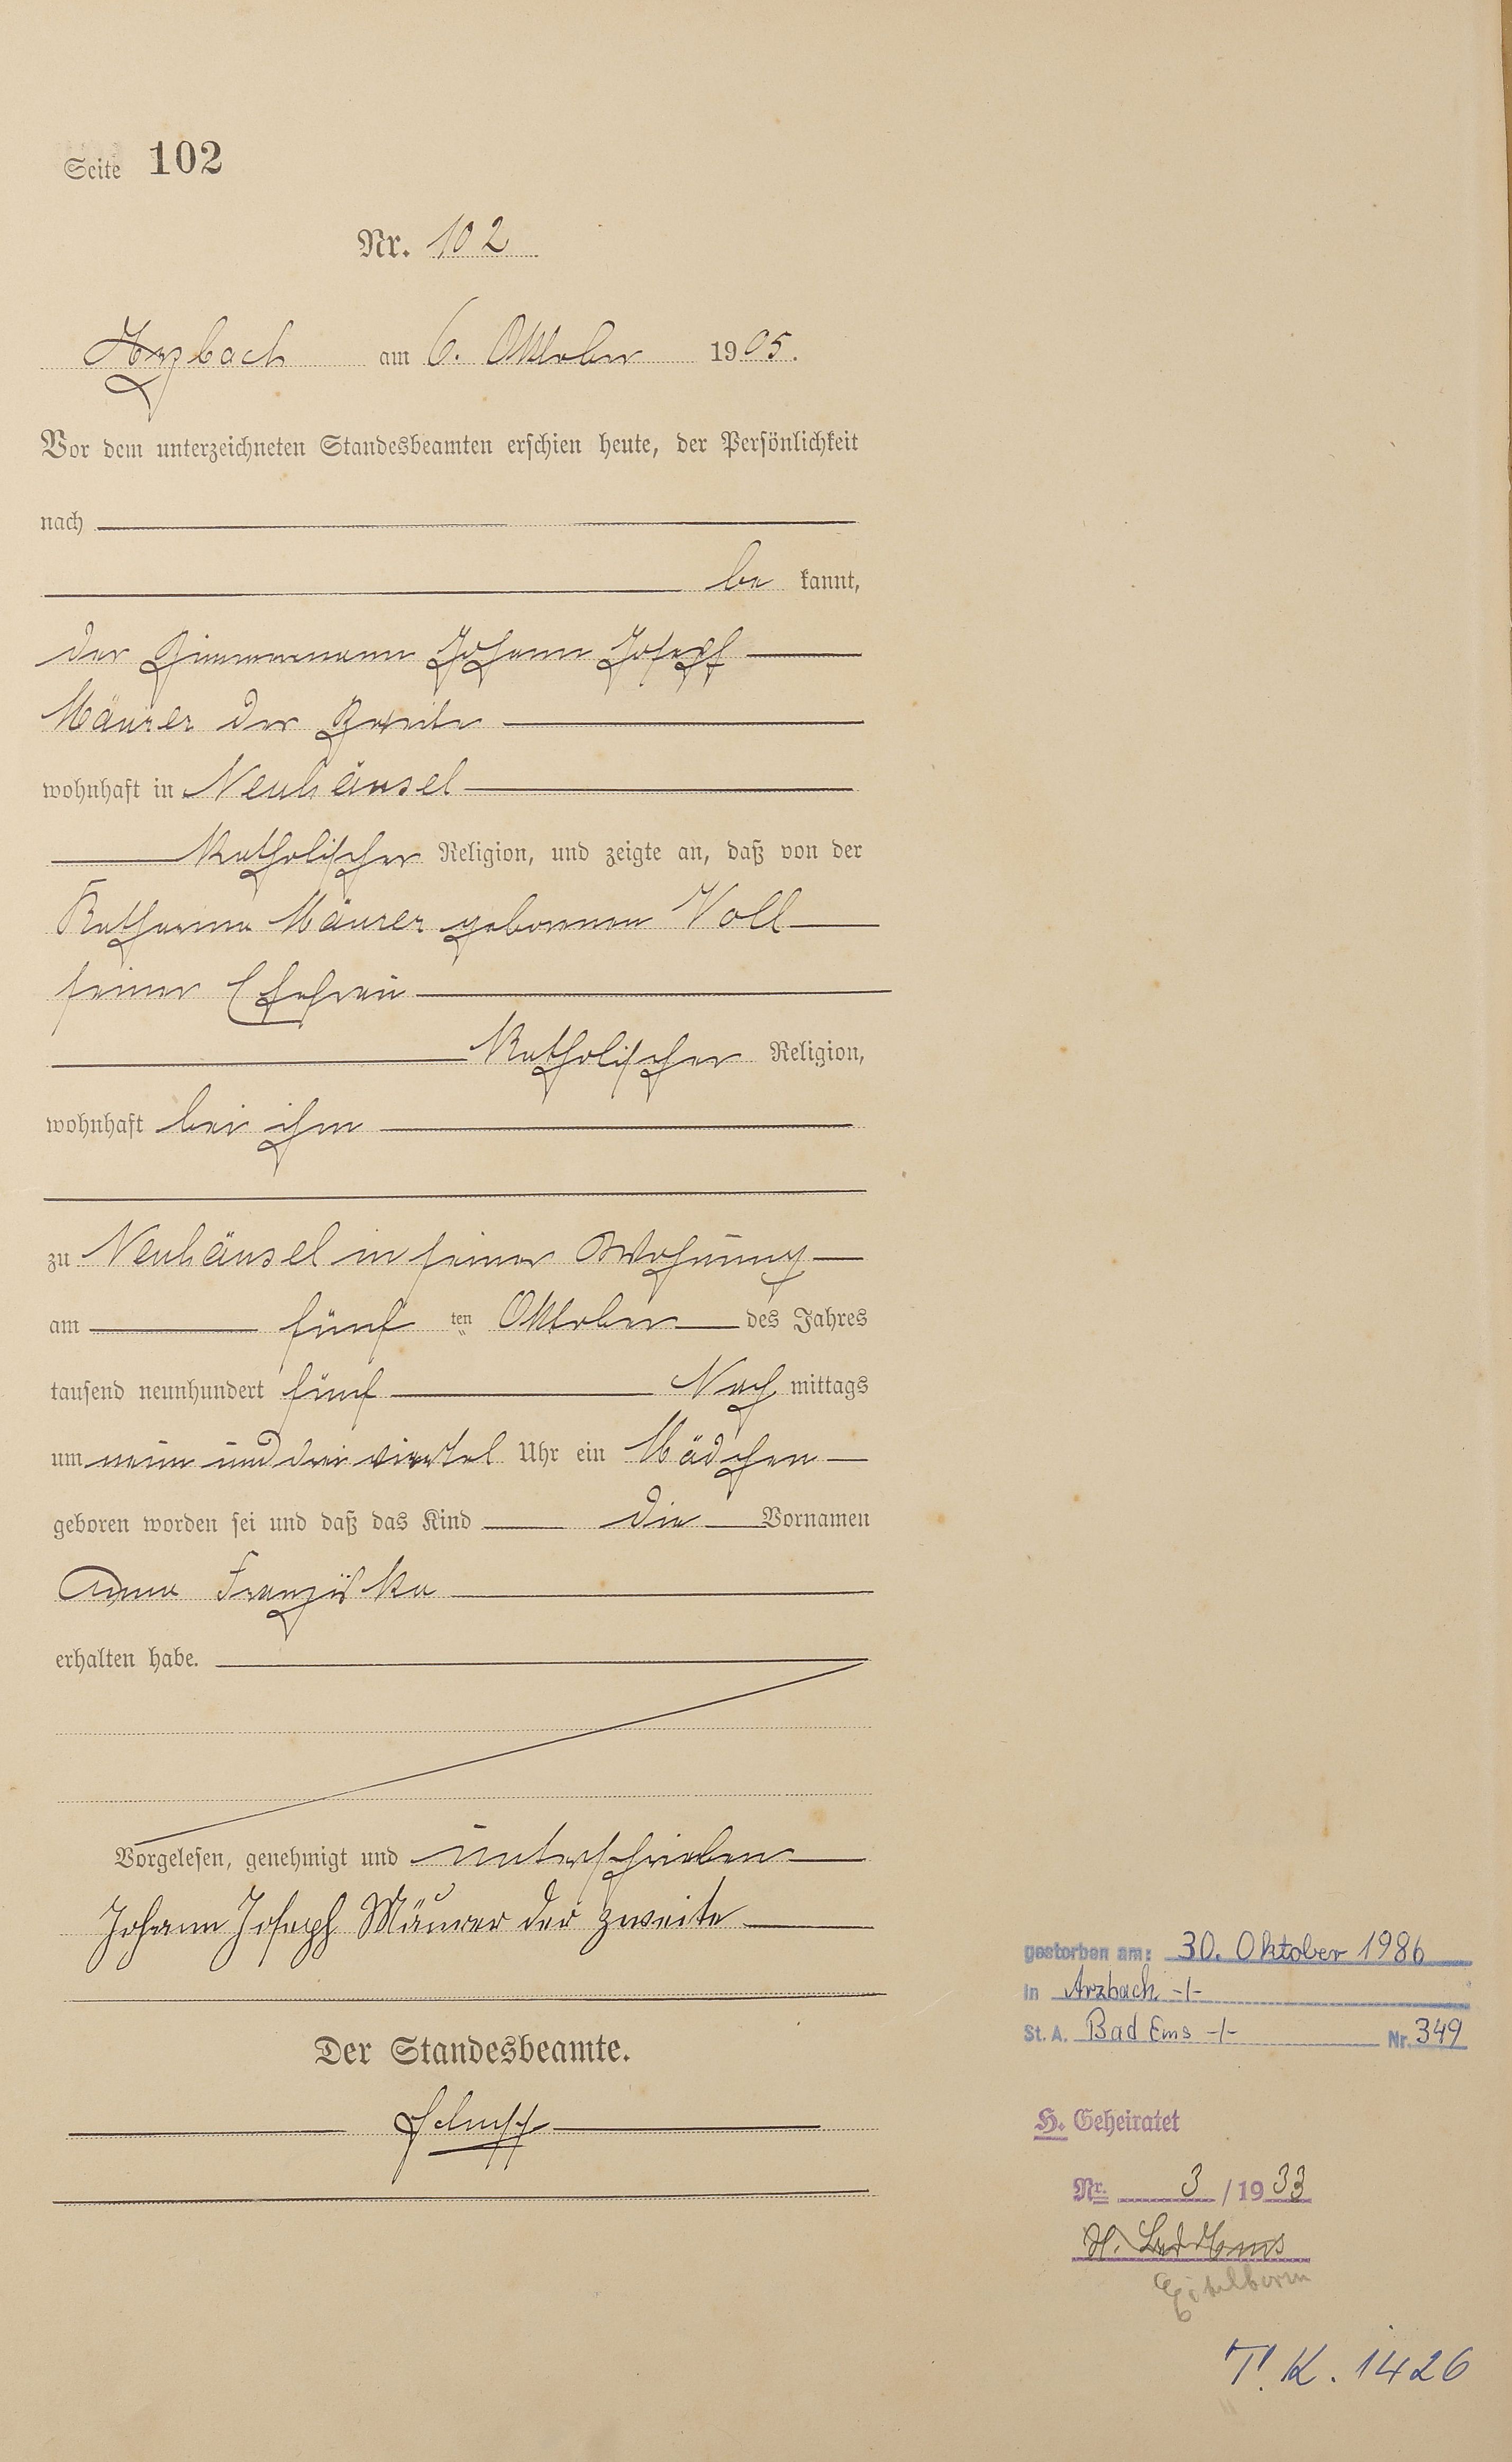 Seite 102
Nr. 102
Arzbach am 6. Oktober 1905.
Vor dem unterzeichneten Standesbeamten erschien heute, der Persönlichkeit
nach
be kannt,
der Zimmermann Johann Joseph
Mäurer der Zweite
wohnhaft in Neuhäusel
Katholischer Religion, und zeigte an, daß von der
Katharina Mäurer geborenen Voll
seiner Ehefrau
Katholischer Religion,
wohnhaft bei ihm
zu Neuhäusel in seiner Wohnung
am fünf ten Oktober des Jahres
tausend neunhundert fünf Nach mittags
um neun und drei viertel Uhr ein Mädchen
geboren worden sei und daß das Kind die Vornamen
Anna Franziska
erhalten habe.
Vorgelesen, genehmigt und unterschrieben
Johann Joseph Mäurer der zweite
Der Standesbeamte.
gestorben am: 30. Oktober 1986
in Arzbach -/-
St. A. Bad Ems -/- Nr. 349
H. Geheiratet
Nr. 3 / 1933
Eitelborn
T. K. 1426